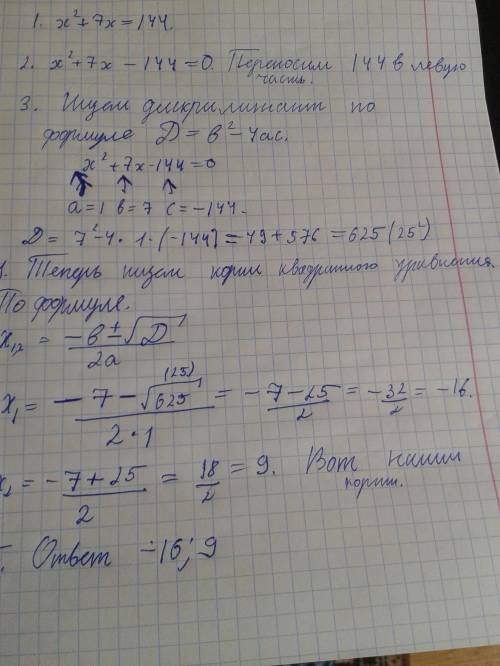 1. x²+7x=144.
2. x²+7x-144=0. Переносим 144 в левую
часть.
3. Ищем дискриминант по
формуле D=b²-4ac.
x²+7x-144=0
a=1 b=7 c=-144.
D= 7²-4·1·(-144)=49+576=625(25²)
4. Теперь ищем корни квадратного уравнения.
По формуле.
x₁,₂ = (-b±√D)/2a
x₁= (-7-√625 (25))/2·1 = (-7-25)/2 = -32/2 = -16.
x₂ = (-7+25)/2 = 18/2 = 9. Вот наши
корни.
Ответ -16; 9